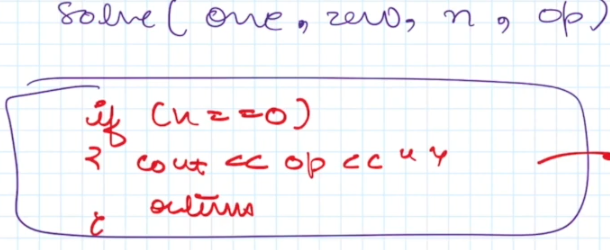 solve( one, zero, n, op)
if (n==0)
{ cout << op << " "
return
}